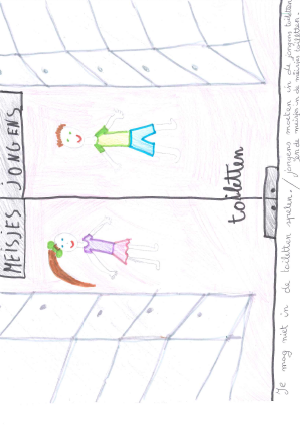 MEISJES JONGENS
toiletten
Je mag niet in de toiletten spelen. / jongens moeten in de jongens toiletten
en de meisjes in de meisjes toiletten.